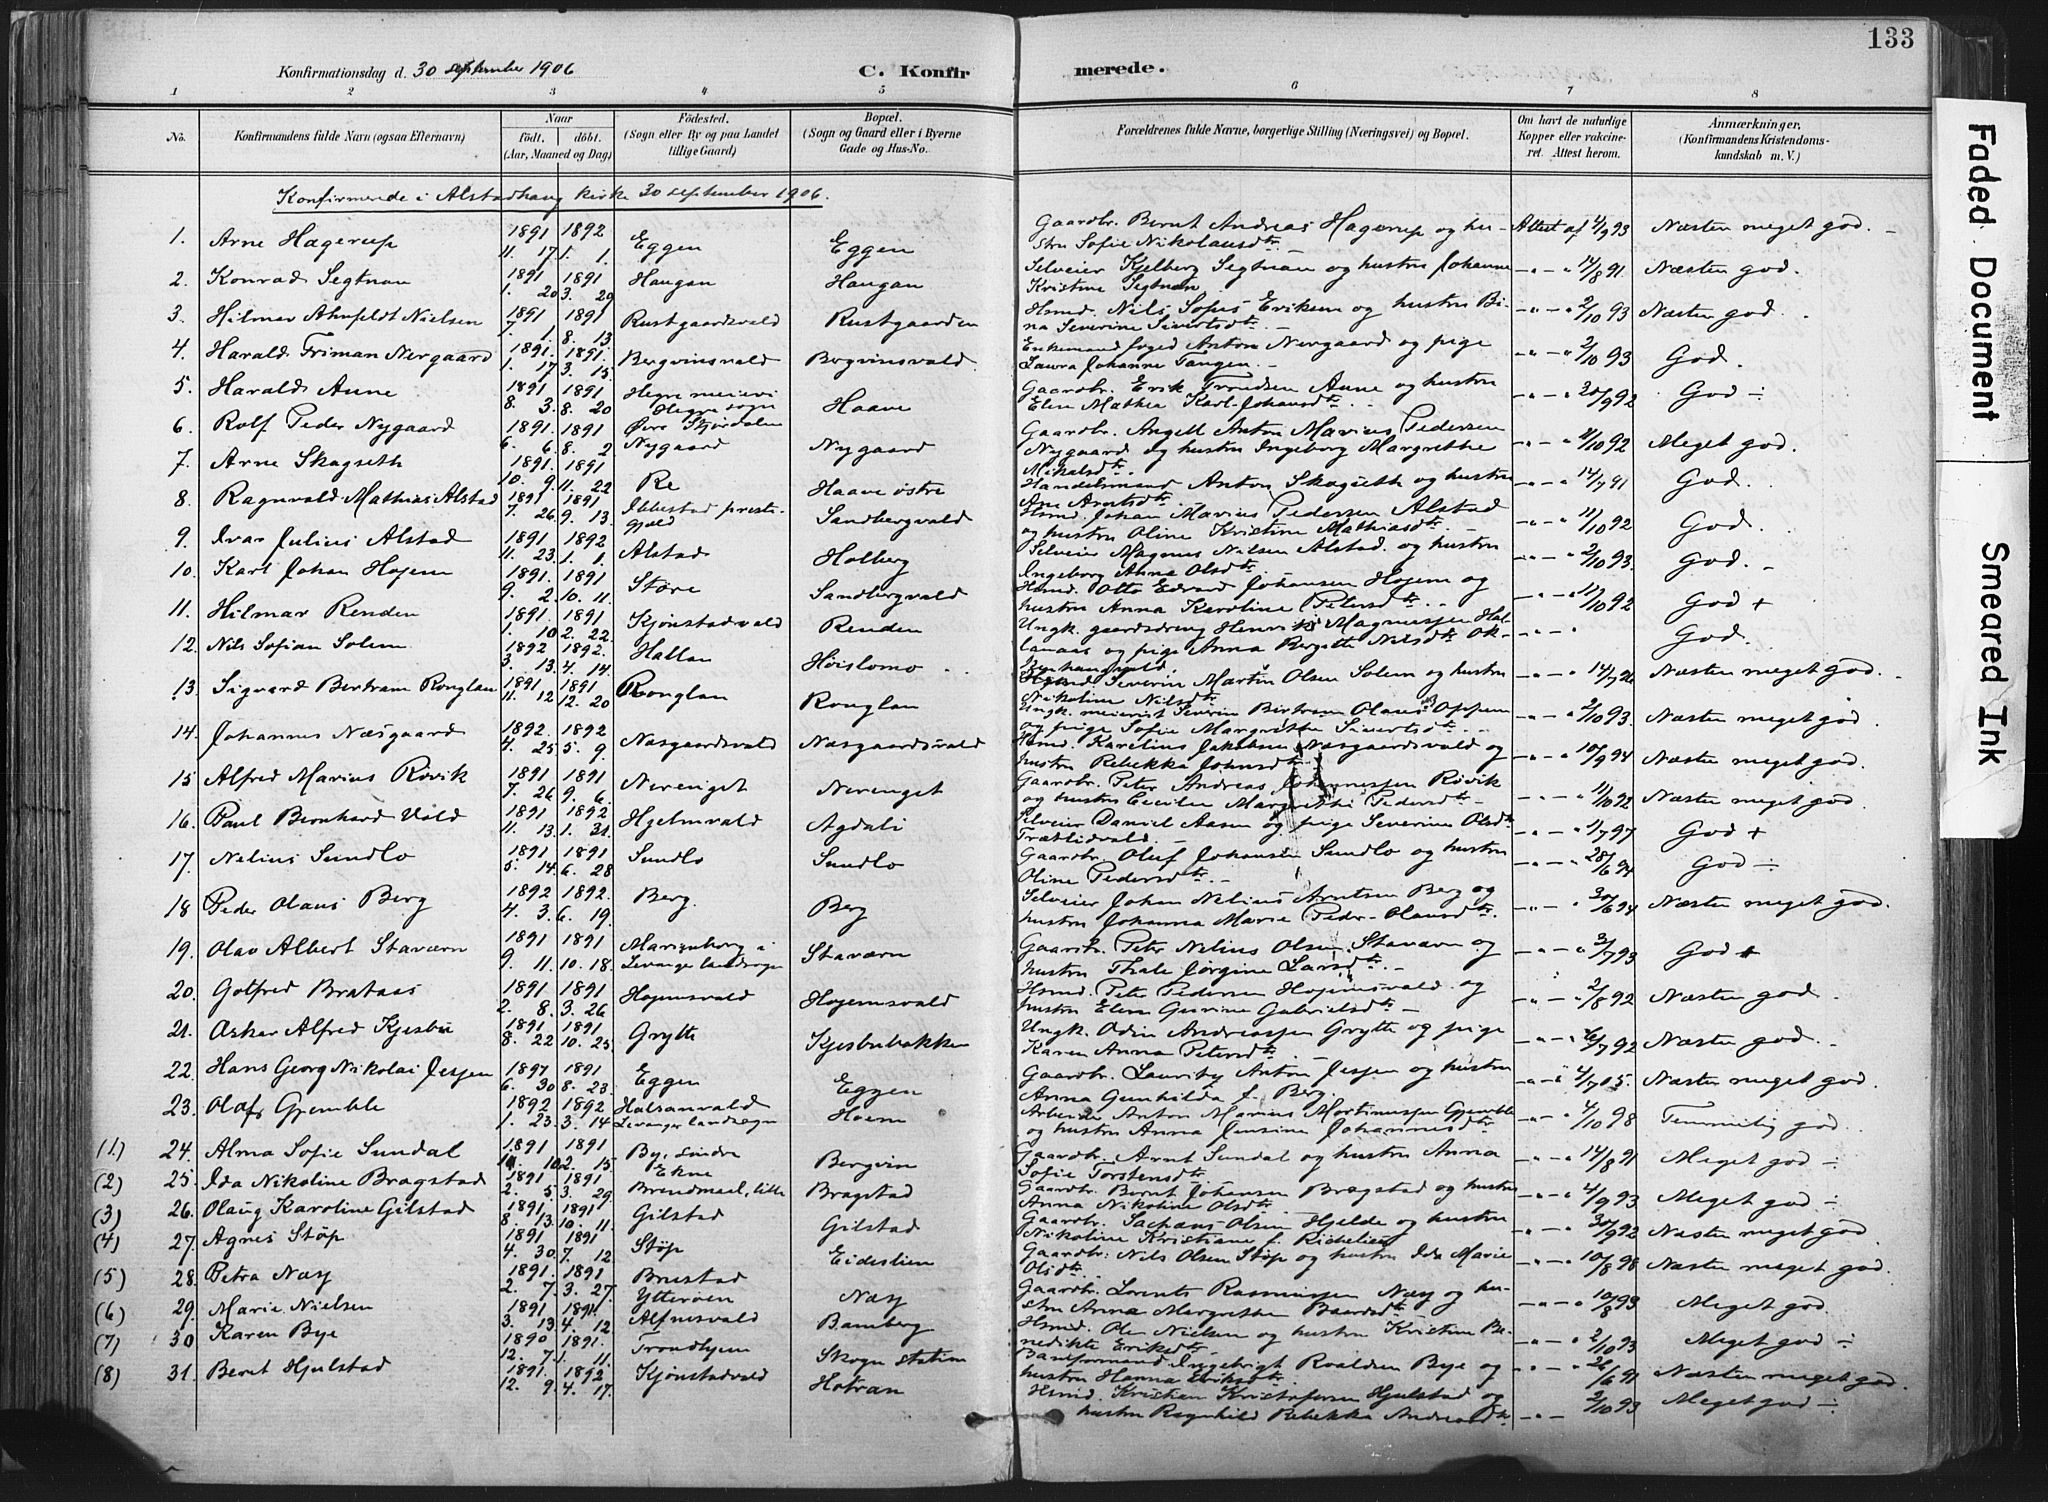 133
Konfirmationsdag d. 30 september 1906
C. Konfirmerede.
1 2 3 4 5 6 7 8
No.
Konfirmandens fulde Navn (ogsaa Efternavn)
Naar
født. døbt.
(Aar, Maaned og Dag)
Fødested.
(Sogn eller By og paa Landet
tillige Gaard)
Bopæl.
(Sogn og Gaard eller i Byerne
Gade og Hus-No.
Forældrenes fulde Navne, borgerlige Stilling (Næringsvei) og Bopæl.
Om havt de naturlige
Kopper eller vakcine-
ret. Attest herom.
Anmærkninger,
(Konfirmandens Kristendoms-
kundskab m. V.)
Konfirmerede i Alstadhaug kirke 30 september 1906.
1. Arne Hagerup 1891 11. 17 1892 1. 1. Eggen Eggen Gaardbr. Bernt Andreas Hagerup og hu-
stru Sofie Nikolausdtr. Attest af 4/9 93 Næsten meget god.
2. Konrad Segtnan 1891 1. 20 1891 3. 29 Haugan Haugan Selveier Kjelberg Segtnan og hustru Johanne
Kristine Segtnan 14/8 91 Næsten god.
3. Hilmar Ahnfeldt Nielsen 1891 7. 1. 1891 8. 13 Rustgaardsvald Rustgaarden Hsmd. Nils Sofus Eriksen og hustru Bi-
na Severine Sivertsdtr. 2/10 93 Næsten god.
4. Harald Friman Nergaard 1891. 1. 17 1891. 3. 15. Bergvinsvald Bergvinsvald. Enkemand foged Anton Nergaard og pige
Laura Johanne Tangen. 2/10 93 God.
5. Harald Aune 1891 8. 3. 1891 8. 20 Hegre meieri
Hegre sogn
Øvre Stjørdalen Haave Gaardbr. Erik Trondsen Aune og hustru
Elen Mathea Karl-Johansdtr. 20/9 92 God ÷
6. Rolf Peder Nygaard 1891. 6. 6. 1891 8. 2 Nygaard Nygaard Gaardbr. Angell Anton Marius Pedersen
Nygaard og hustru Ingeborg Margrethe
Mikalsdtr. 4/10 92 Meget god.
7. Arne Skogseth 1891. 10. 9. 1891 11. 22 Re Haave østre Handelsmand Anton Skogseth og hustru
Ane Arntsdtr. 14/7 91 God.
8. Ragnvald Mathias Alstad 1891 7. 26 1891 9. 13. Ibbestad preste-
gjeld Sandbergvald Hsmd. Johan Marius Pedersen Alstad
og hustru Oline Kristine Mathiasdtr. 11/10 92 God.
9. Ivar Julius Alstad 1891 11. 23. 1892 1. 1. Alstad Holberg Selveier Magnus Nilsen Alstad. og hustru
Ingeborg Anna Olsdtr. 2/10 93. God.
10. Karl Johan Hojem 1891. 9. 2. 1891 10. 11. Støre Sandbergvald Hsmd. Otto Edvard Johansen Hojem og
hustru Anna Karoline Petersdtr. 11/10 92 God +
11. Hilmar Renden 1891 1. 10 1891 2. 22. Kjønstadvald Renden Ungk. gaardsdreng Henrik Magnussen Hal-
lanaas og pige Anna Bergitte Nilsdtr. God.
12. Nils Sofian Solem 1892 3. 13. 1892. 4. 14. Hallan Høislomo Severin Martin Olsen Solem og hustru
Nikoline Nilsdtr. Næsten meget god.
13. Sigvard Bertram Ronglan 1891 11. 12 1891 12. 20 Ronglan Ronglan Ungk. meierist Severin Bertram Olaus Oppem
og pige Sofie Margrethe Sivertsdtr. 2/10 93. Næsten meget god.
14. Johannes Næsgaard 1892. 4. 25 1892 5. 9. Næsgaardsvald Næsgaardsvald Hsmd. Karelius Jakobsen Næsgaardsvald og
hustru Rebekka Johnsdtr. 10/9 94 Næsten meget god.
15 Alfred Marius Rövik 1891 7. 26 1891 9. 6. Nerenget Nerenget Gaardbr. Peter Andreas Johannessen Rövik
og hustru Cecilie Margrethe Pedersdtr. 11/10 92 Næsten meget god.
16. Paul Bernhard Vold 1891 11. 13. 1892 1. 31. Hjelmvald Agdali Selveier Daniel Aasen og pige Severine Olsdtr
Trætlidvald. 1/7 97 God +
17. Nelius Sundlo 1891 5. 14. 1891 6. 28 Sundlo Sundlo Gaardbr. Oluf Johansen Sundlo og hustru
Oline Pedersdtr. 28/6 94 God ÷
18 Peder Olaus Berg 1892 4. 3. 1892. 6. 19. Berg. Berg Selveier Johan Nelius Arntsen Berg og
hustru Johanna Marie Peder-Olausdtr. 30/6 94 Næsten meget god.
19. Olav Albert Staværn 1891 9. 11. 1891 10. 18. Marienborg i
Levanger landsogn Staværn Gaardbr. Peter Nelius Olsen Staværn og
hustru Thale Jørgine Larsdtr. 3/7 93 God +
20. Gotfred Brataas 1891 2. 8. 1891 3. 26 Hojemsvald Hojemsvald Hsmd. Peter Pedersen Hojemsvald og
hustru Elen Gurine Gabrielsdtr. 2/8 92 Næsten god.
21. Oskar Alfred Kjesbu 1891 8. 22 1891 10. 25 Grytte Kjesbubakken Ungk. Odin Andreassen Grytte og pige
Karen Anna Petersdtr. 6/7 92 Næsten god.
22. Hans Georg Nikolai Jessen 1891 6. 30 1891 8. 23. Eggen Eggen Gaardbr. Lauritz Anton Jessen og hustru
Anna Gunhilda f. Berg. 4/7 05. Næsten meget god.
23. Olaf Gremble 1892 1. 23. 1892 3. 14 Halsanvald
Levanger landsogn Hoem Arbeider Anton Marius Mortinussen Gjemble
og hustru Anna Jensine Johannesdtr 4/10 98 Temmelig god.
(1.) 24. Alma Sofie Sundal 1891 10. 1891 2. 15 By, søndre
Ekne Bergvin Gaardbr. Arnt Sundal og hustru Anna
Sofie Torstensdtr. 14/8 91 Meget god ÷
(2) 25. Ida Nikoline Bragstad 1891 2. 5. 1891 3. 29 Brendmoel, litle Bragstad Gaardbr. Bernt Johansen Bragstad og hustru
Anna Nikoline Olsdtr. 4/9 93 Meget god ÷
(3) 26. Olaug Karoline Gilstad 1891 8. 13. 1891 10. 11. Gilstad Gilstad Gaardbr. Sachaus Olsen Hjelde og hustru
Nikoline Kristiane f. Richelien 30/9 92 Næsten meget god.
(4) 27. Agnes Støp 1891 4. 30 1891 7. 12 Støp Eideslien Gaardbr. Nils Olsen Støp og hustru Ida Marie
Olsdtr. 10/8 98 Næsten meget god.
(5) 28. Petra Næss 1891. 2. 7. 1891 3. 27. Brustad
Ytterøen Næss Gaardbr. Lorents Rasmussen Næss og hu-
stru Anna Margrethe Baardsdtr. 10/8 93 Meget god.
(6) 29. Marie Nielsen 1891 3. 13 1891 4. 12 Alfnesvald Bamberg Hsmd. Ole Nielsen og hustru Kristine Be-
nedikte Eriksdtr. 2/10 93 Meget god ÷
(7) 30 Karen Bye 1890 12. 7. 1891. 1. 11. Trondhjem Skogn station Baneformand Ingebrigt Roaldsen Bye og
hustru Hanna Eriksdtr. 26/6 91 Næsten meget god.
(8) 31. Beret Hjulstad 1891. 12. 9. 1892 4. 17. Kjønstadvald Hotran Hsmd. Kristian Kristofersen Hjulstad og
hustru Ragnhild Rebekka Andreasdtr. 2/10 93 Meget god ÷
Faded Document
Smeared Ink